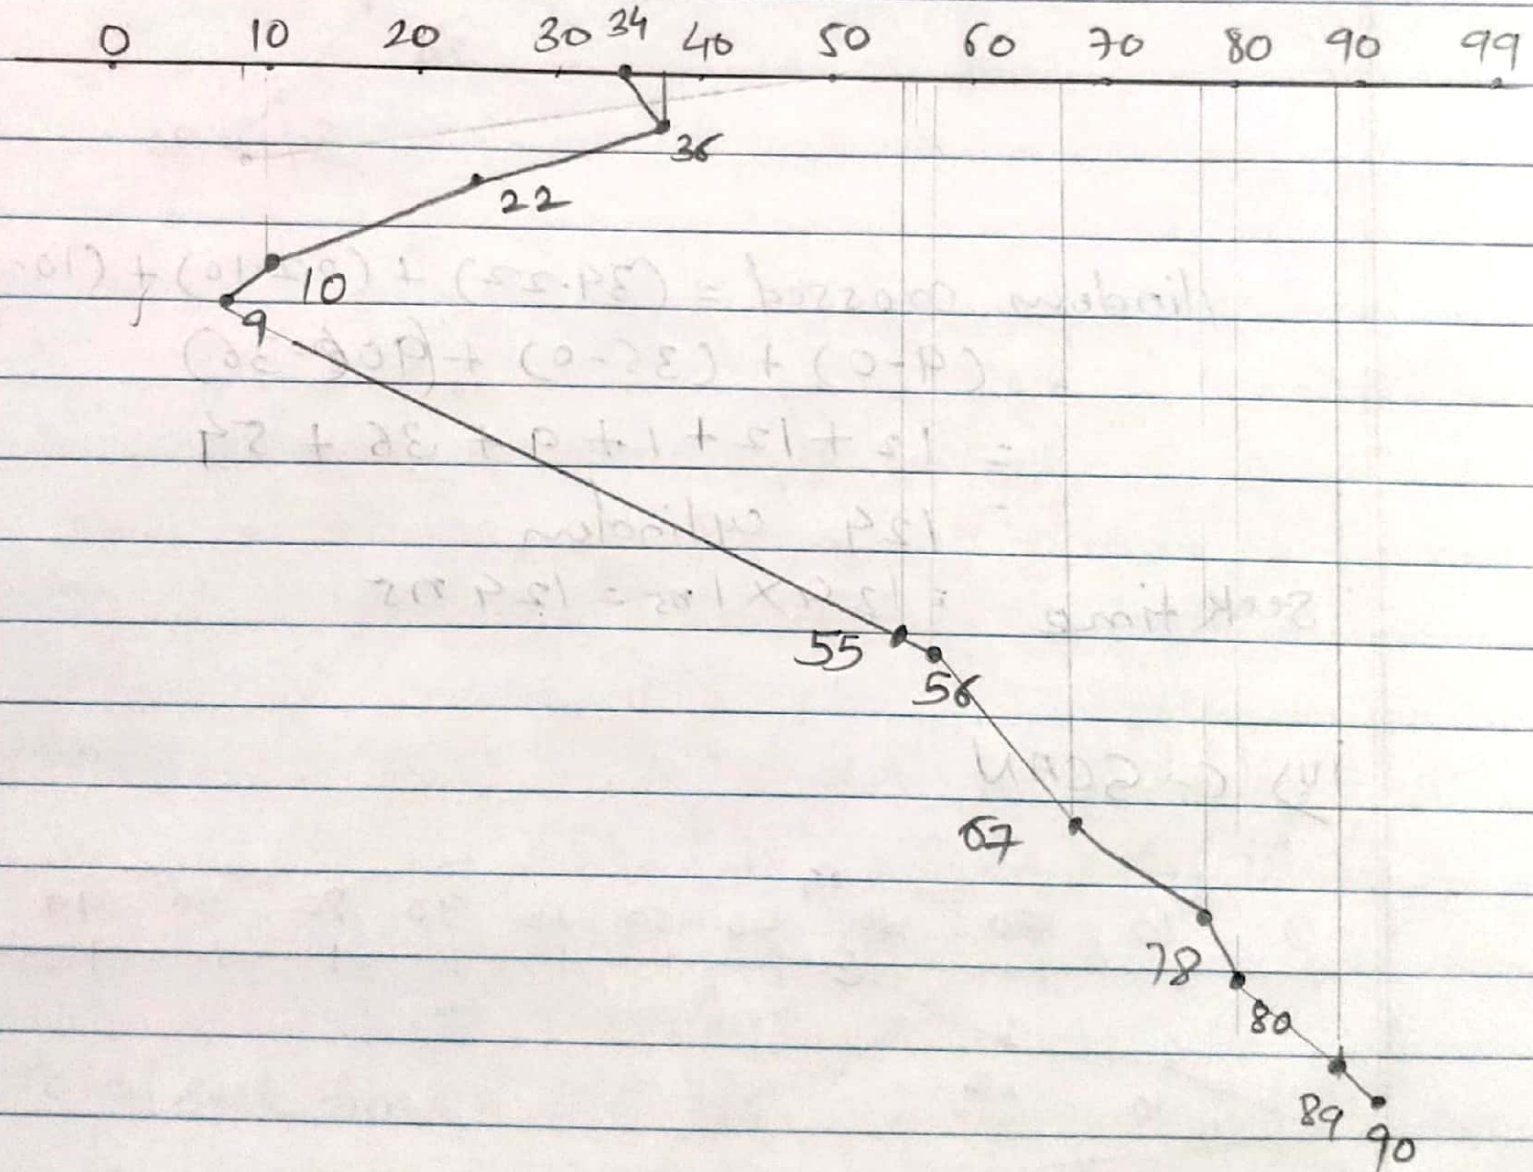 0 10 20 30 34 40 50 60 70 80 90 99
36
22
10
9
55
56
67
78
80
89
90